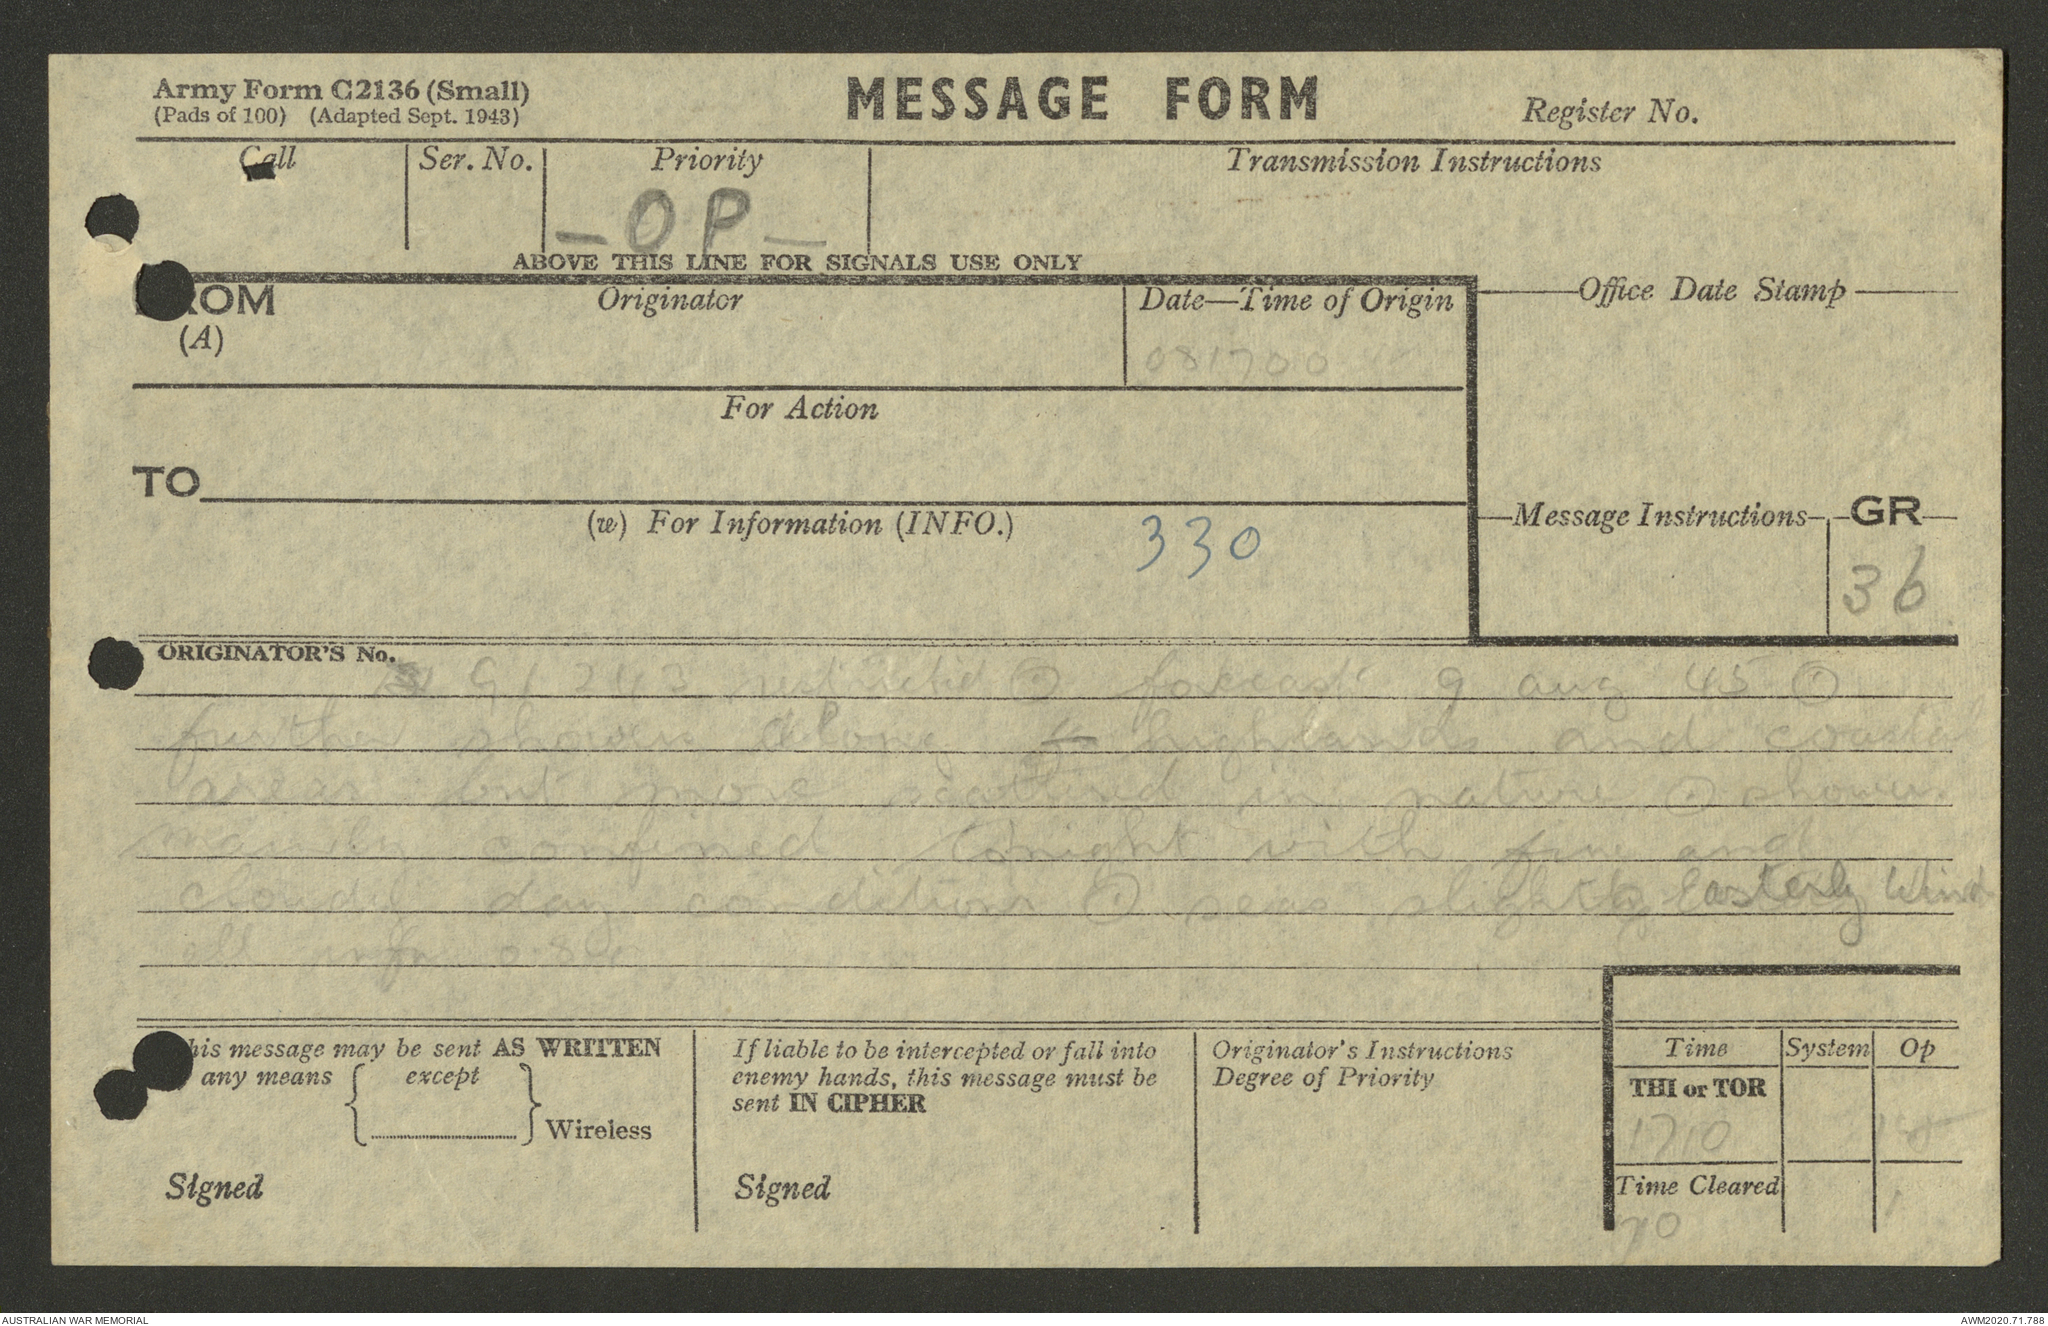 Army Form C2136 (Small)
(Pads of 100) (Adapted Sept. 1943)
MESSAGE FORM
Register No.
Call
Ser. No.
Priority
Transmission Instructions
- OP -
ABOVE THIS LINE FOR SIGNALS USE ONLY
ROM
(A)
Originator
Date—Time of Origin
081700
Office Date Stamp
For Action
TO
(w) For Information (INFO.)
330
Message Instructions
GR
36
ORIGINATOR'S No.
GI 243 restricted ⊙ forecast 9 aug 45 ⊙
further showers along highlands and coastal
areas but more scattered in nature ⊙ showers
mainly confined tonight with fine and
cloudy day conditions ⊙ seas slight Easterly Wind
all
his message may be sent AS WRITTEN
any means except
Wireless
Signed
If liable to be intercepted or fall into
enemy hands, this message must be
sent IN CIPHER
Signed
Originator's Instructions
Degree of Priority
Time
System
Op
THI or TOR
1710
Time Cleared
AUSTRALIAN WAR MEMORIAL
AWM2020.71.788